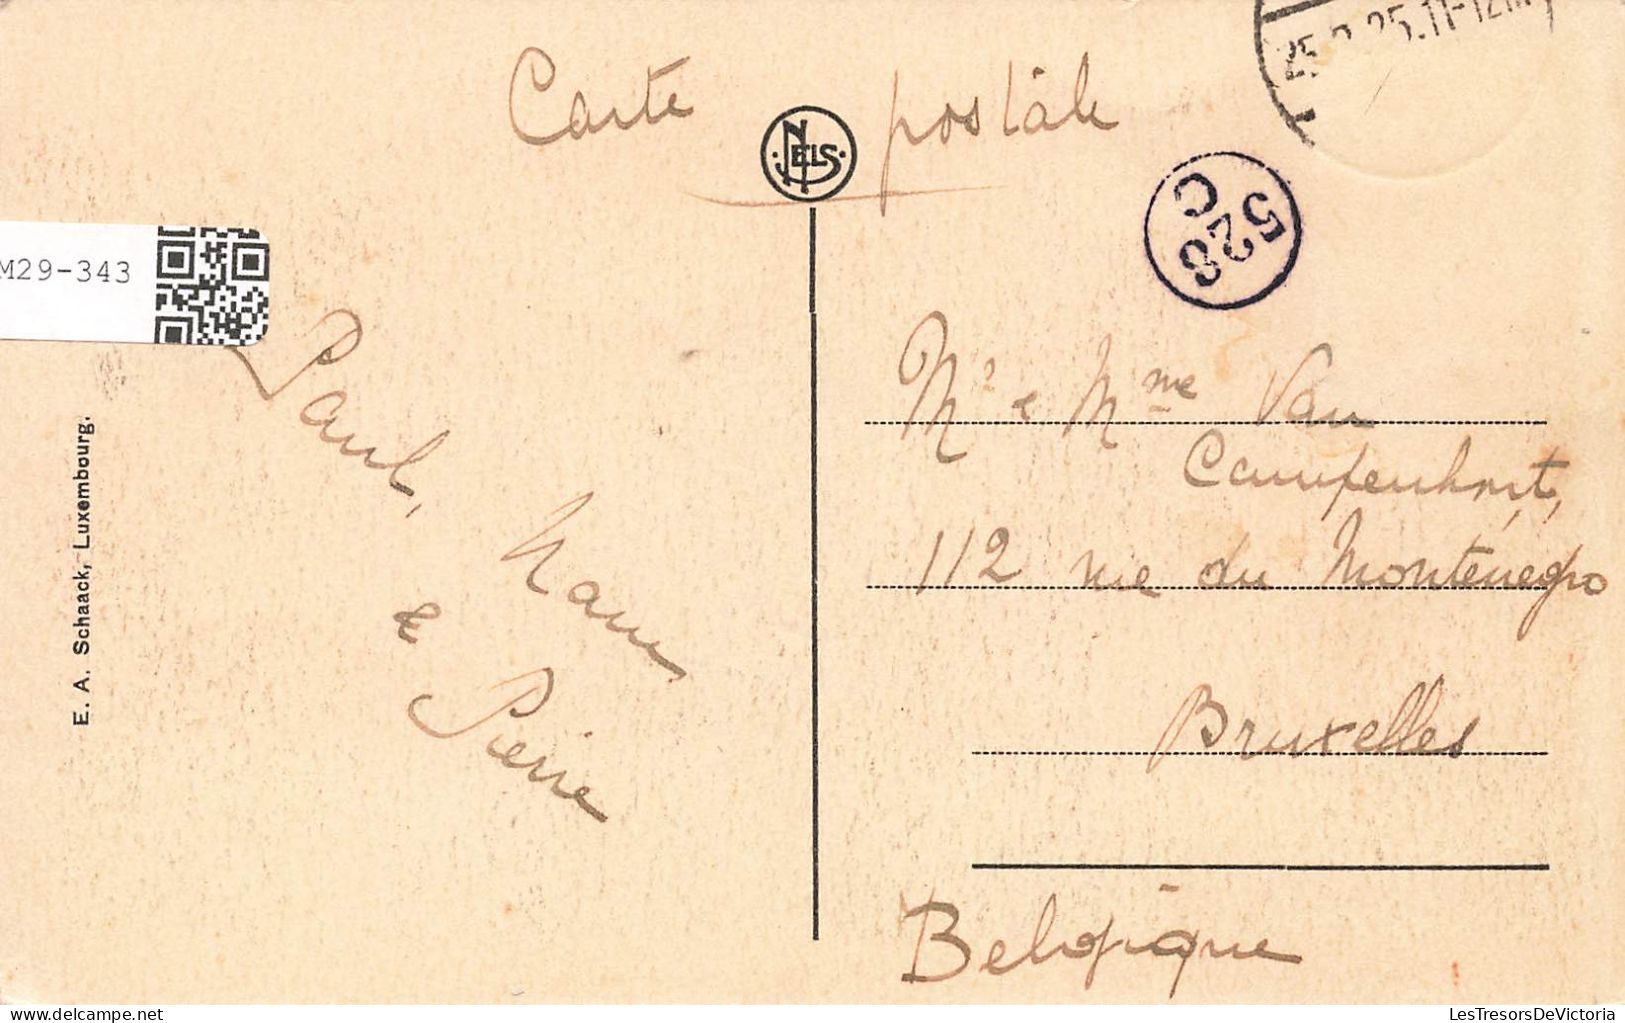 Carte postale
NELS
25. .25.11-12
528
C
M29-343
E. A. Schaack, Luxembourg.
Paul,
&
Pierre
Mr & Mme Van
Campenhout,
112 rue du Monténégro
Bruxelles
Belgique
LesTresorsDeVictoria